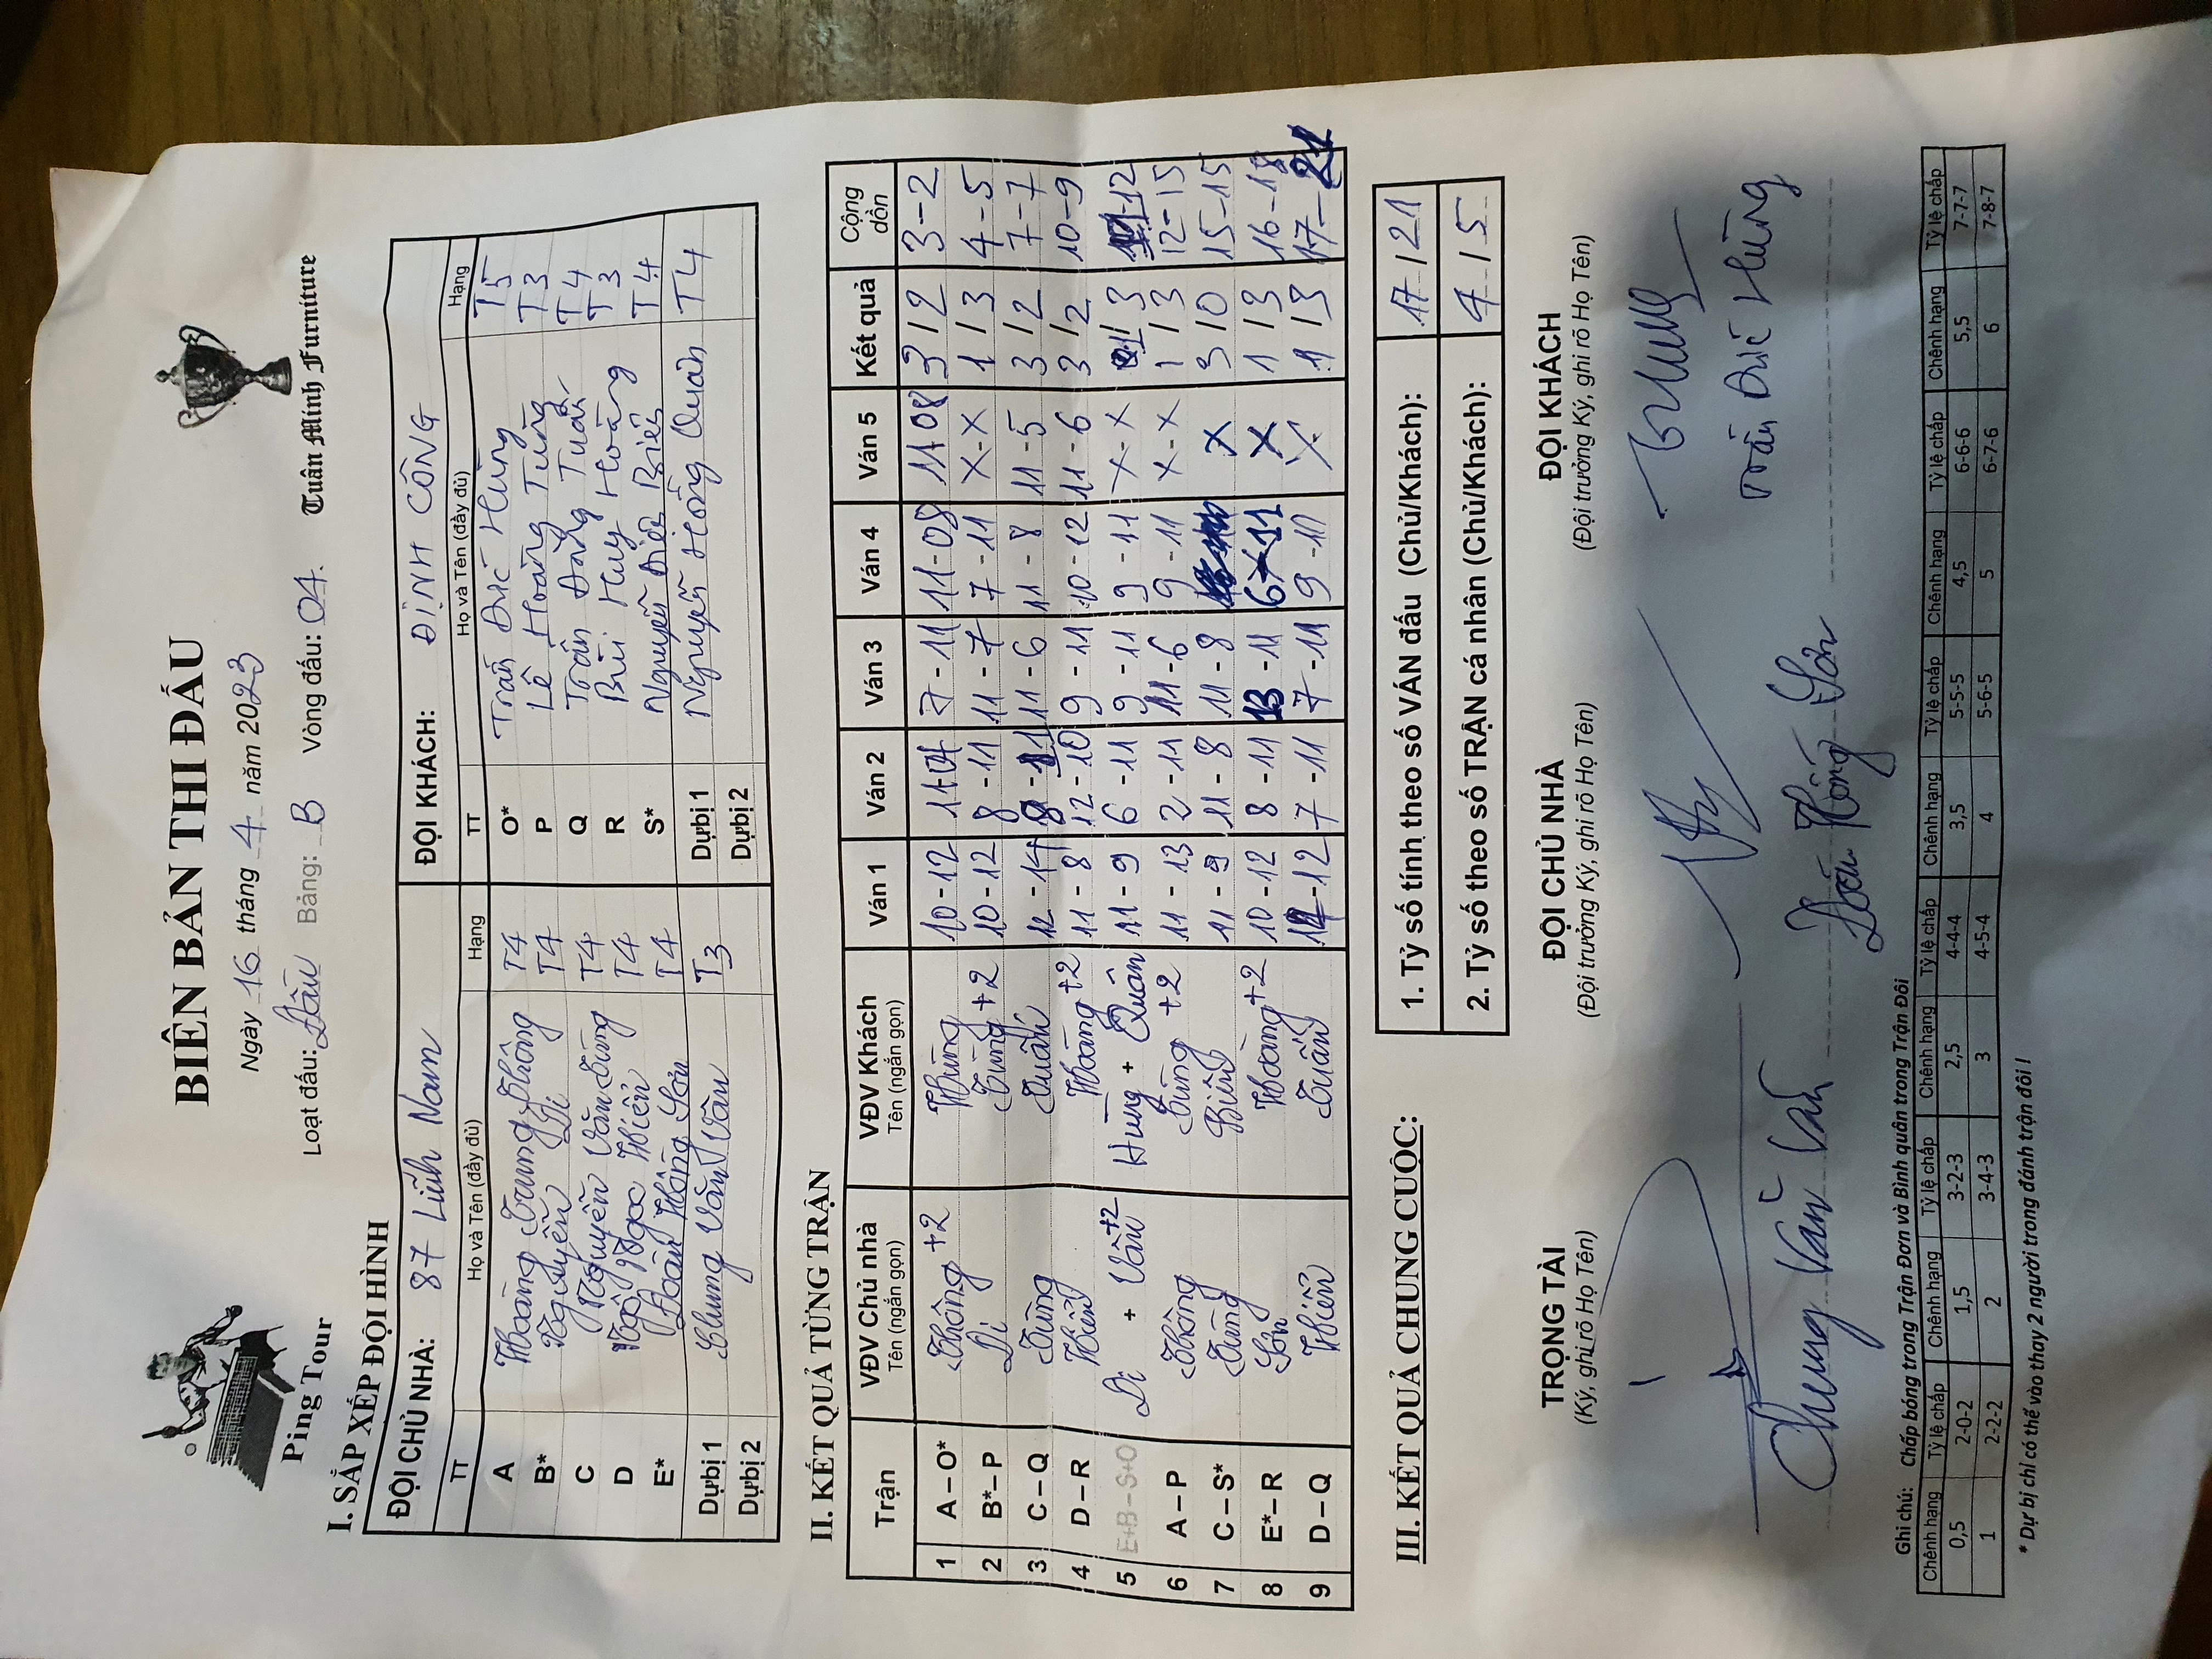 Ping Tour
BIÊN BẢN THI ĐẤU
Ngày 16 tháng 4 năm 2023
Loạt đấu: Đầu Bảng: B Vòng đấu: 04.
Tuân Minh Furniture
I. SẮP XẾP ĐỘI HÌNH
ĐỘI CHỦ NHÀ: 87 Lĩnh Nam ĐỘI KHÁCH: ĐỊNH CÔNG
TT Họ và Tên (đầy đủ) Hạng TT Họ và Tên (đầy đủ) Hạng
A Hoàng Trung Thông T4 O* Trần Đức Hùng T5
B* Nguyễn Di T4 P Lê Hoàng Tùng T3
C Nguyễn Văn Tùng T4 Q Trần Anh Tuấn T4
D Ngô Ngọc Hiển T4 R Bùi Huy Hoàng T3
E* Đoàn Hồng Sơn T4 S* Nguyễn Điện Biên T4
Dự bị 1 Chung Văn Vân T3 Dự bị 1 Nguyễn Hồng Quân T4
Dự bị 2 Dự bị 2
II. KẾT QUẢ TỪNG TRẬN
Trận VĐV Chủ nhà VĐV Khách Ván 1 Ván 2 Ván 3 Ván 4 Ván 5 Kết quả Cộng dồn
Tên (ngắn gọn) Tên (ngắn gọn)
1 A – O* Thông +2 Hùng 10-12 11-04 7-11 11-08 11-08 3/2 3-2
2 B* – P Di Tùng +2 10-12 8-11 11-7 7-11 X-X 1/3 4-5
3 C – Q Tùng Tuấn 12-14 8-11 11-6 11-8 11-5 3/2 7-7
4 D – R Hiển Hoàng +2 11-8 12-10 9-11 10-12 11-6 3/2 10-9
5 E+B – S+O Di + Vân +2 Hùng + Quân 11-9 6-11 9-11 9-11 X-X 1/3 11-12
6 A – P Thông Tùng +2 11-13 2-11 11-6 9-11 X-X 1/3 12-15
7 C – S* Tùng Biên 11-9 11-8 11-8 X 3/0 15-15
8 E* – R Sơn Hoàng +2 10-12 8-11 13-11 6-11 X 1/3 16-18
9 D – Q Hiển Tuấn 14-12 7-11 7-11 9-11 X 1/3 17-21
III. KẾT QUẢ CHUNG CUỘC:
1. Tỷ số tính theo số VÁN đấu (Chủ/Khách): 17/21
2. Tỷ số theo số TRẬN cá nhân (Chủ/Khách): 4/5
TRỌNG TÀI ĐỘI CHỦ NHÀ ĐỘI KHÁCH
(Ký, ghi rõ Họ Tên) (Đội trưởng Ký, ghi rõ Họ Tên) (Đội trưởng Ký, ghi rõ Họ Tên)
Chung Văn Vân Đoàn Hồng Sơn Trần Đức Hùng
Ghi chú: Chấp bóng trong Trận Đơn và Bình quân trong Trận Đôi
Chênh hạng Tỷ lệ chấp Chênh hạng Tỷ lệ chấp Chênh hạng Tỷ lệ chấp Chênh hạng Tỷ lệ chấp Chênh hạng Tỷ lệ chấp Chênh hạng Tỷ lệ chấp
0,5 2-0-2 1,5 3-2-3 2,5 4-4-4 3,5 5-5-5 4,5 6-6-6 5,5 7-7-7
1 2-2-2 2 3-4-3 3 4-5-4 4 5-6-5 5 6-7-6 6 7-8-7
* Dự bị chỉ có thể vào thay 2 người trong đánh trận đôi !